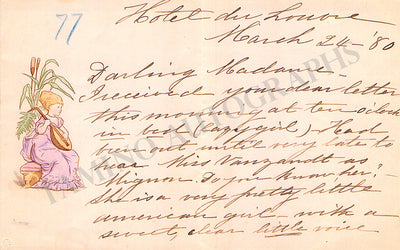 77
Hotel du Louvre
March 24 - '80
Darling Madame -
I received your dear letter
this morning at ten o'clock
in bed (lazy girl) Had
been out until very late to
hear Miss Vanzandt as
Mignon Do you know her? -
She is a very pretty little
american girl - with a
sweet, clear little voice
TAMINO AUTOGRAPHS